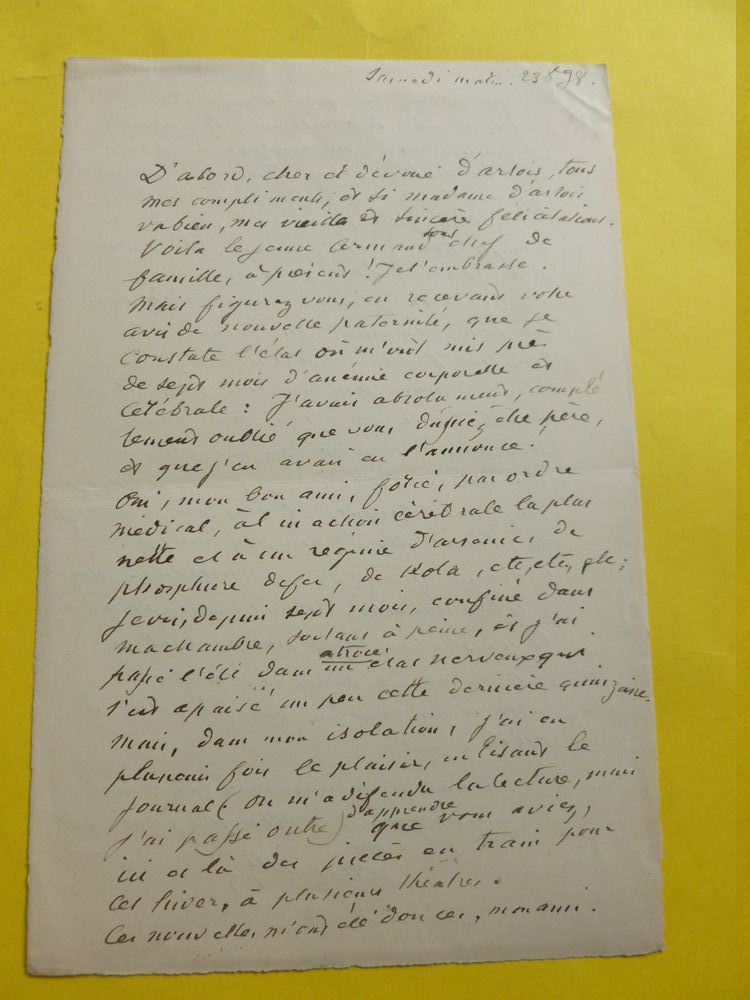 Samedi matin. 23 8bre 98.
D'abord, cher et dévoué d'artois, tous
mes compliments, et si madame d'artois
va bien, mes vieilles et sincères félicitations.
Voilà le jeune Armand sous chef de
famille, à présent ! Je l'embrasse.
Mais figurez vous, en recevant votre
avis de nouvelle paternité, que je
constate l'état où m'ont mis près
de sept mois d'anémie corporelle et
cérébrale : J'avais absolument, complè
tement oublié que vous dussiez être père,
et que j'en avais eu l'annonce !
Oui, mon bon ami, forcé, par ordre
médical, à l'inaction cérébrale la plus
nette et à un régime d'arsenic, de
phosphure de fer, de Kola, etc, etc, etc ;
je vis, depuis sept mois, confiné dans
ma chambre, sortant à peine, et j'ai
passé l'été dans un atroce état nerveux qui
s'est apaisé un peu cette dernière quinzaine.
Mais, dans mon isolation, j'ai eu
plusieurs fois le plaisir, en lisant le
journal (on m'a défendu la lecture, mais
j'ai passé outre) d'apprendre que vous aviez,
ici et là des pièces en train pour
cet hiver, à plusieurs théâtres.
Ces nouvelles m'ont été douces, mon ami.